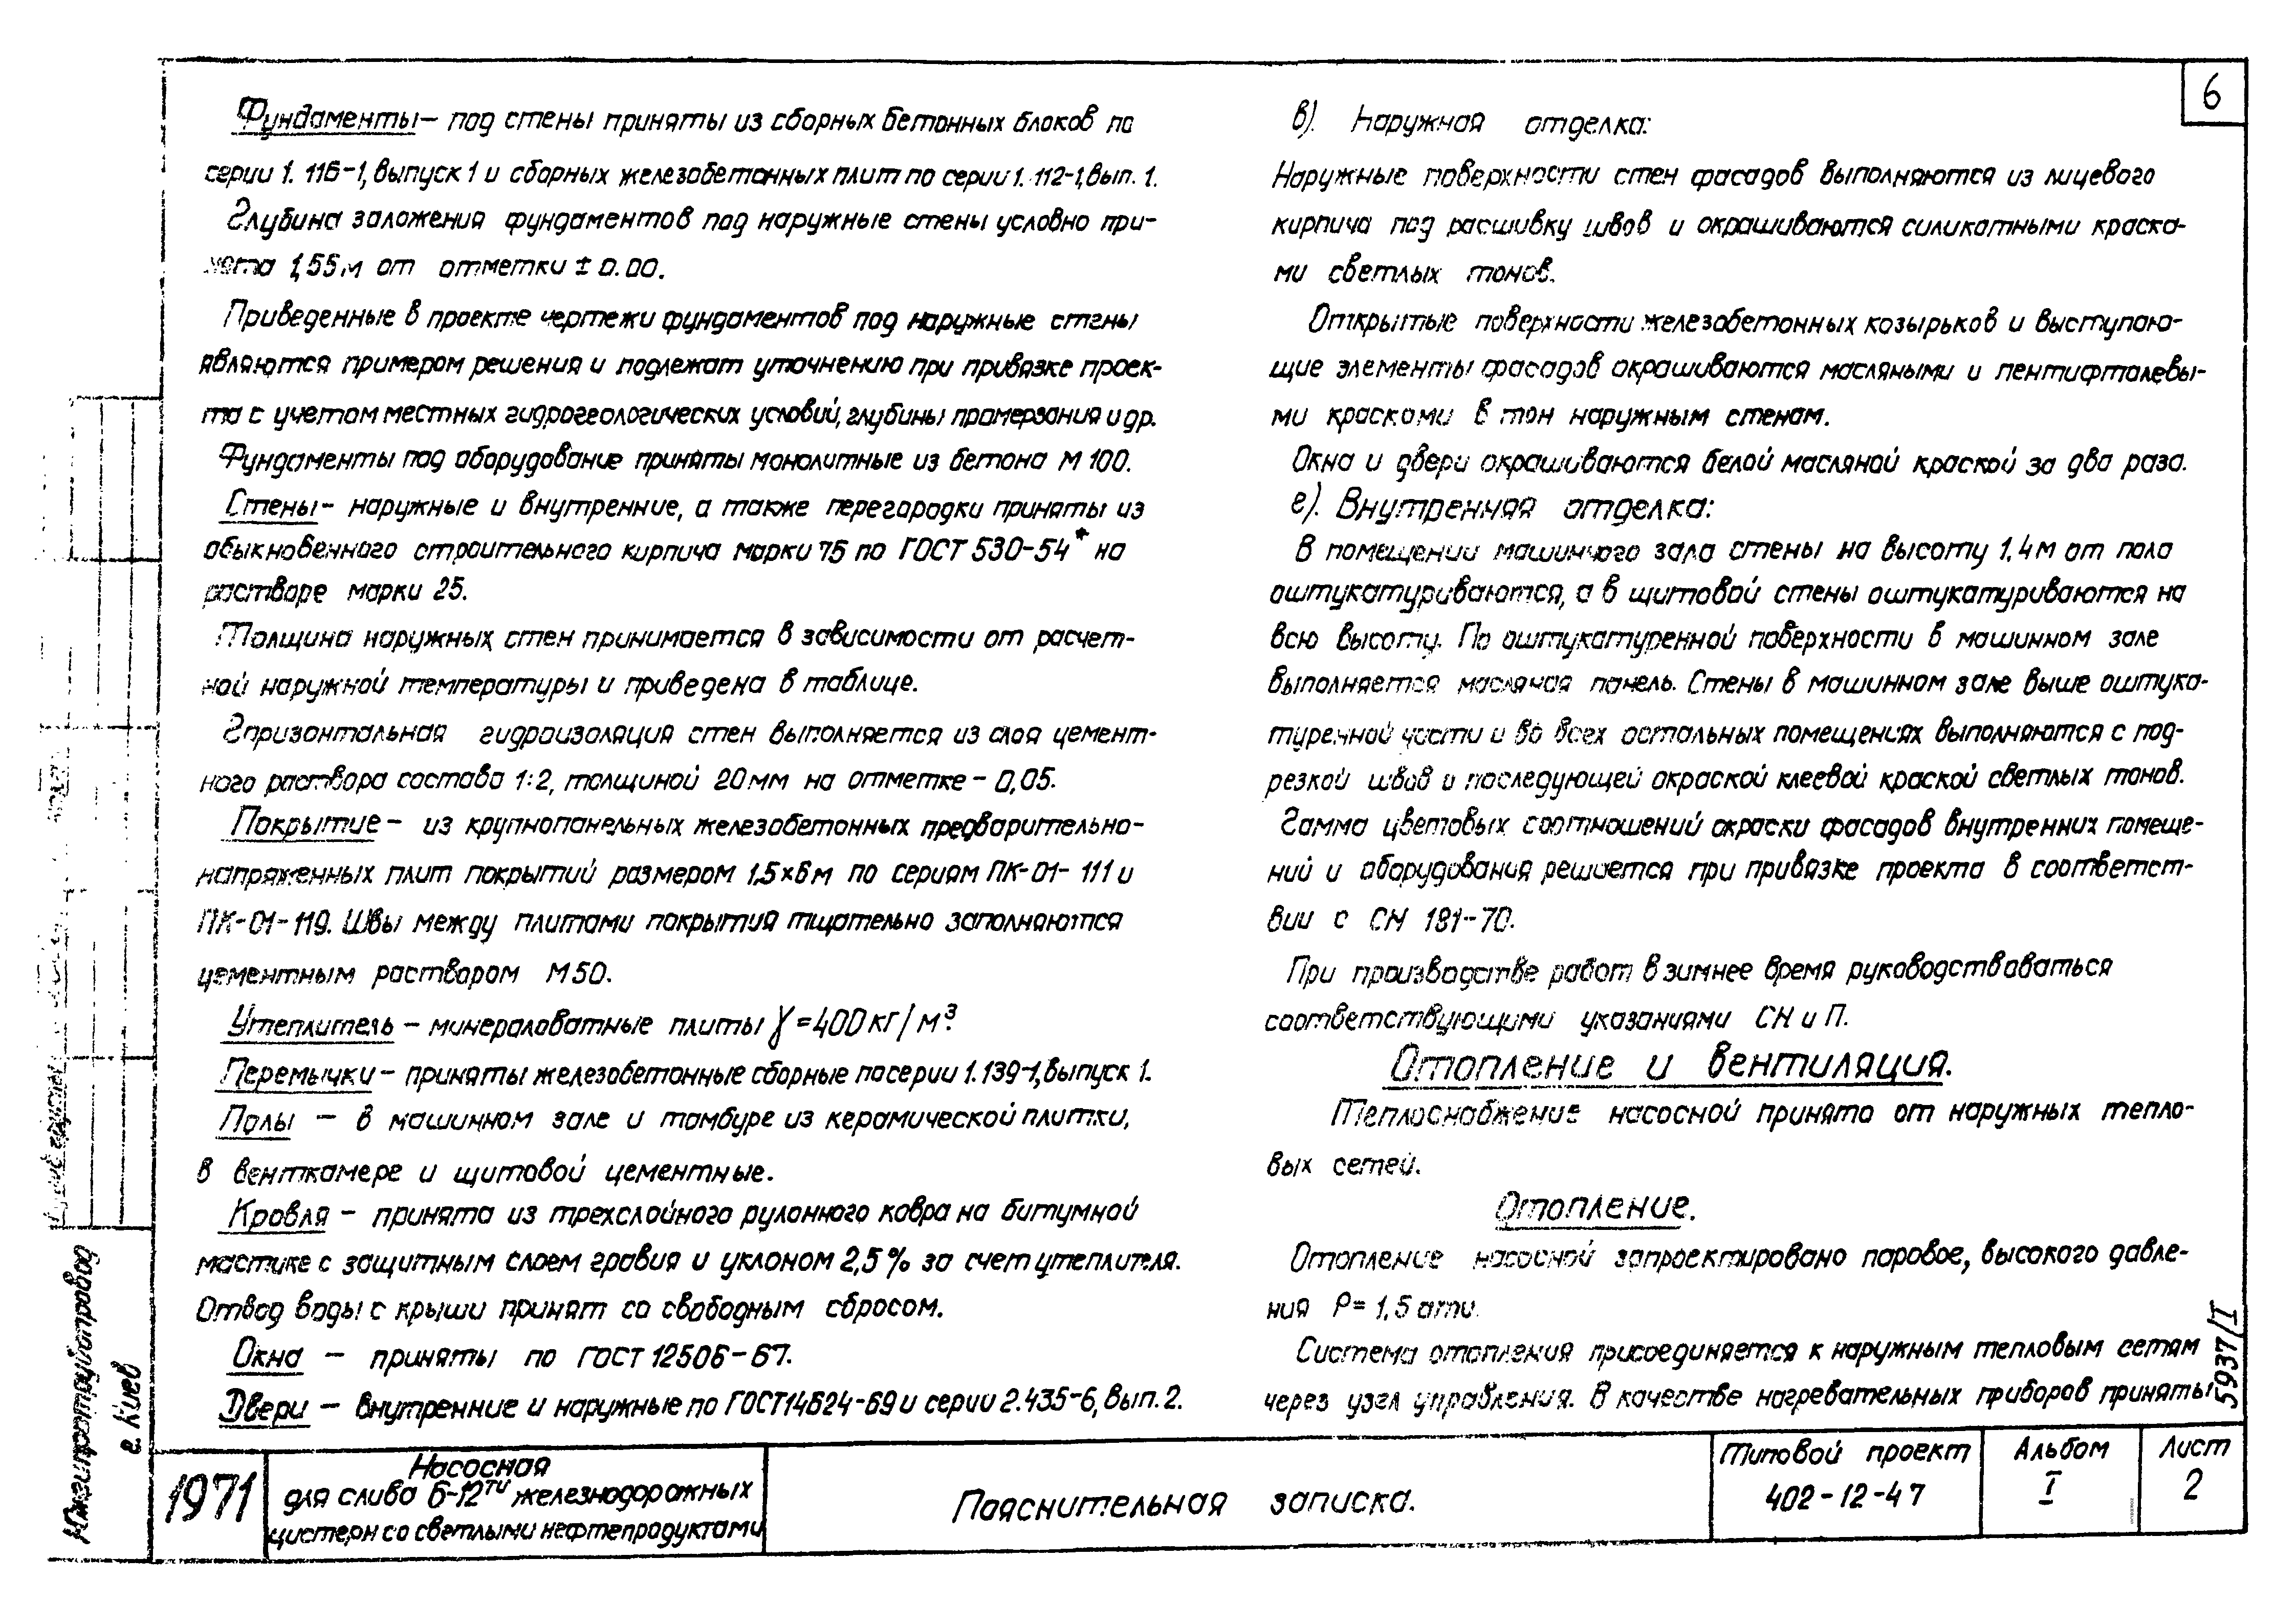 6
Фундаменты – под стены приняты из сборных бетонных блоков по
серии 1.116-1, выпуск 1 и сборных железобетонных плит по серии 1.112-1, вып. 1.
Глубина заложения фундаментов под наружные стены условно при-
нята 1,55м от отметки ± 0.00.
Приведенные в проекте чертежи фундаментов под наружные стены
являются примером решения и подлежат уточнению при привязке проек-
та с учетом местных гидрогеологических условий, глубины промерзания и др.
Фундаменты под оборудование приняты монолитные из бетона М 100.
Стены – наружные и внутренние, а также перегородки приняты из
обыкновенного строительного кирпича марки 75 по ГОСТ 530-54* на
растворе марки 25.
Толщина наружных стен принимается в зависимости от расчет-
ной наружной температуры и приведена в таблице.
Горизонтальная гидроизоляция стен выполняется из слоя цемент-
ного раствора состава 1:2, толщиной 20мм на отметке – 0,05.
Покрытие – из крупнопанельных железобетонных предварительно-
напряженных плит покрытий размером 1,5×6м по сериям ПК-01-111 и
ПК-01-119. Швы между плитами покрытия тщательно заполняются
цементным раствором М50.
Утеплитель – минераловатные плиты γ=400кг/м³.
Перемычки – приняты железобетонные сборные по серии 1.139-1, выпуск 1.
Полы – в машинном зале и тамбуре из керамической плитки,
в венткамере и щитовой цементные.
Кровля – принята из трехслойного рулонного ковра на битумной
мастике с защитным слоем гравия и уклоном 2,5% за счет утеплителя.
Отвод воды с крыши принят со свободным сбросом.
Окна – приняты по ГОСТ 12506-67.
Двери – внутренние и наружные по ГОСТ 14624-69 и серии 2.435-6, вып. 2.
в). Наружная отделка:
Наружные поверхности стен фасадов выполняются из лицевого
кирпича под расшивку швов и окрашиваются силикатными краска-
ми светлых тонов.
Открытые поверхности железобетонных козырьков и выступаю-
щие элементы фасадов окрашиваются масляными и пентифталевы-
ми красками в тон наружным стенам.
Окна и двери окрашиваются белой масляной краской за два раза.
г). Внутренняя отделка:
В помещении машинного зала стены на высоту 1.4м от пола
оштукатуриваются, а в щитовой стены оштукатуриваются на
всю высоту. По оштукатуренной поверхности в машинном зале
выполняется масляная панель. Стены в машинном зале выше оштука-
туренной части и во всех остальных помещениях выполняются с под-
резкой швов и последующей окраской клеевой краской светлых тонов.
Гамма цветовых соотношений окраски фасадов внутренних помеще-
ний и оборудования решается при привязке проекта в соответст-
вии с СН 181-70.
При производстве работ в зимнее время руководстваваться
соответствующими указаниями СН и П.
Отопление и вентиляция.
Теплоснабжение насосной принято от наружных тепло-
вых сетей.
Отопление.
Отопление насосной запроектировано паровое, высокого давле-
ния P = 1,5 ати.
Система отопления присоединяется к наружным тепловым сетям
через узел управления. В качестве нагревательных приборов приняты
5937/I
Южгипронефтепровод
г. Киев
1971
Насосная
для слива 6-12ти железнодорожных
цистерн со светлыми нефтепродуктами
Пояснительная записка.
Типовой проект
402-12-47
Альбом
I
Лист
2